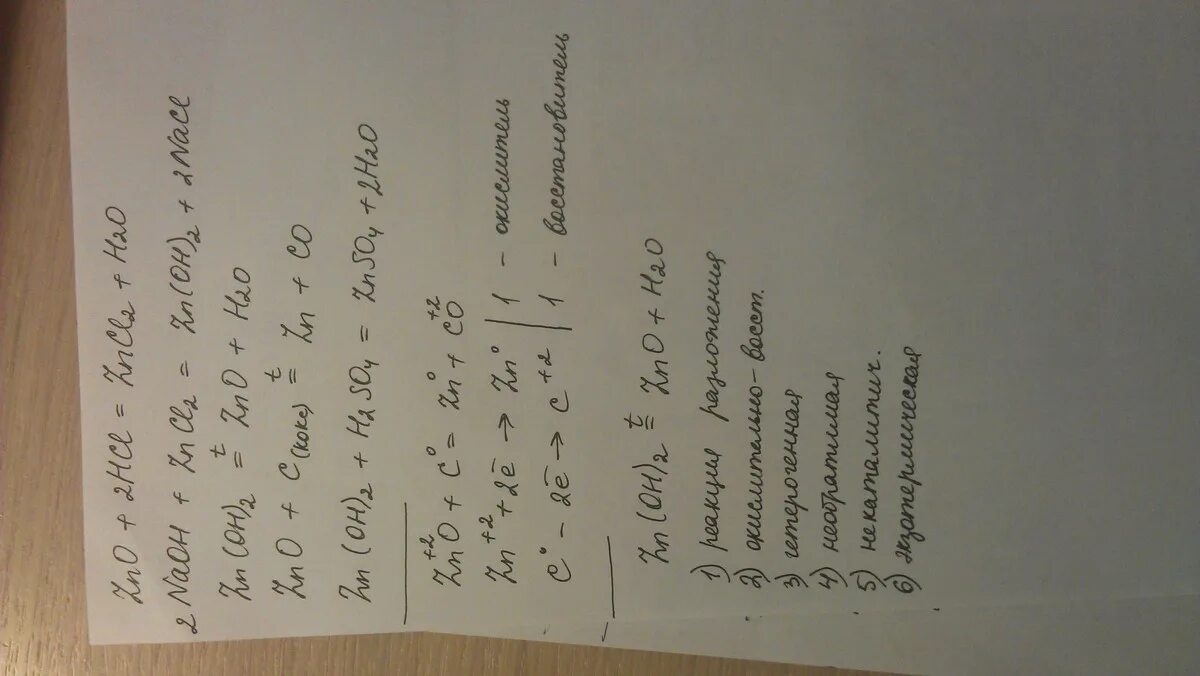 ZnO + 2HCl = ZnCl₂ + H₂O
2NaOH + ZnCl₂ = Zn(OH)₂ + 2NaCl
Zn(OH)₂ =ᵗ ZnO + H₂O
ZnO + C(кокс) =ᵗ Zn + CO
Zn(OH)₂ + H₂SO₄ = ZnSO₄ + 2H₂O
Zn⁺²O + C⁰ = Zn⁰ + C⁺²O
Zn⁺² + 2ē → Zn⁰ | 1 - окислитель
C⁰ - 2ē → C⁺² | 1 - восстановитель
Zn(OH)₂ =ᵗ ZnO + H₂O
1) реакция разложения
2) окислительно-восст.
3) гетерогенная
4) необратимая
5) некаталитич.
6) экзотермическая